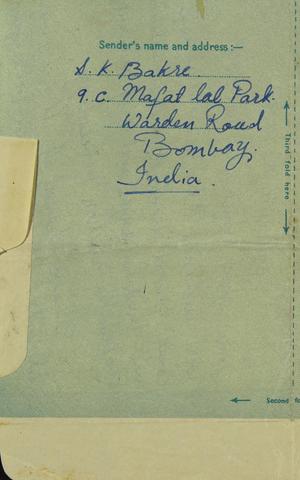 Sender's name and address:—
S. K. Bakre
9. C. Mafat lal Park.
Warden Road
Bombay.
India.
Third fold here
Second fo